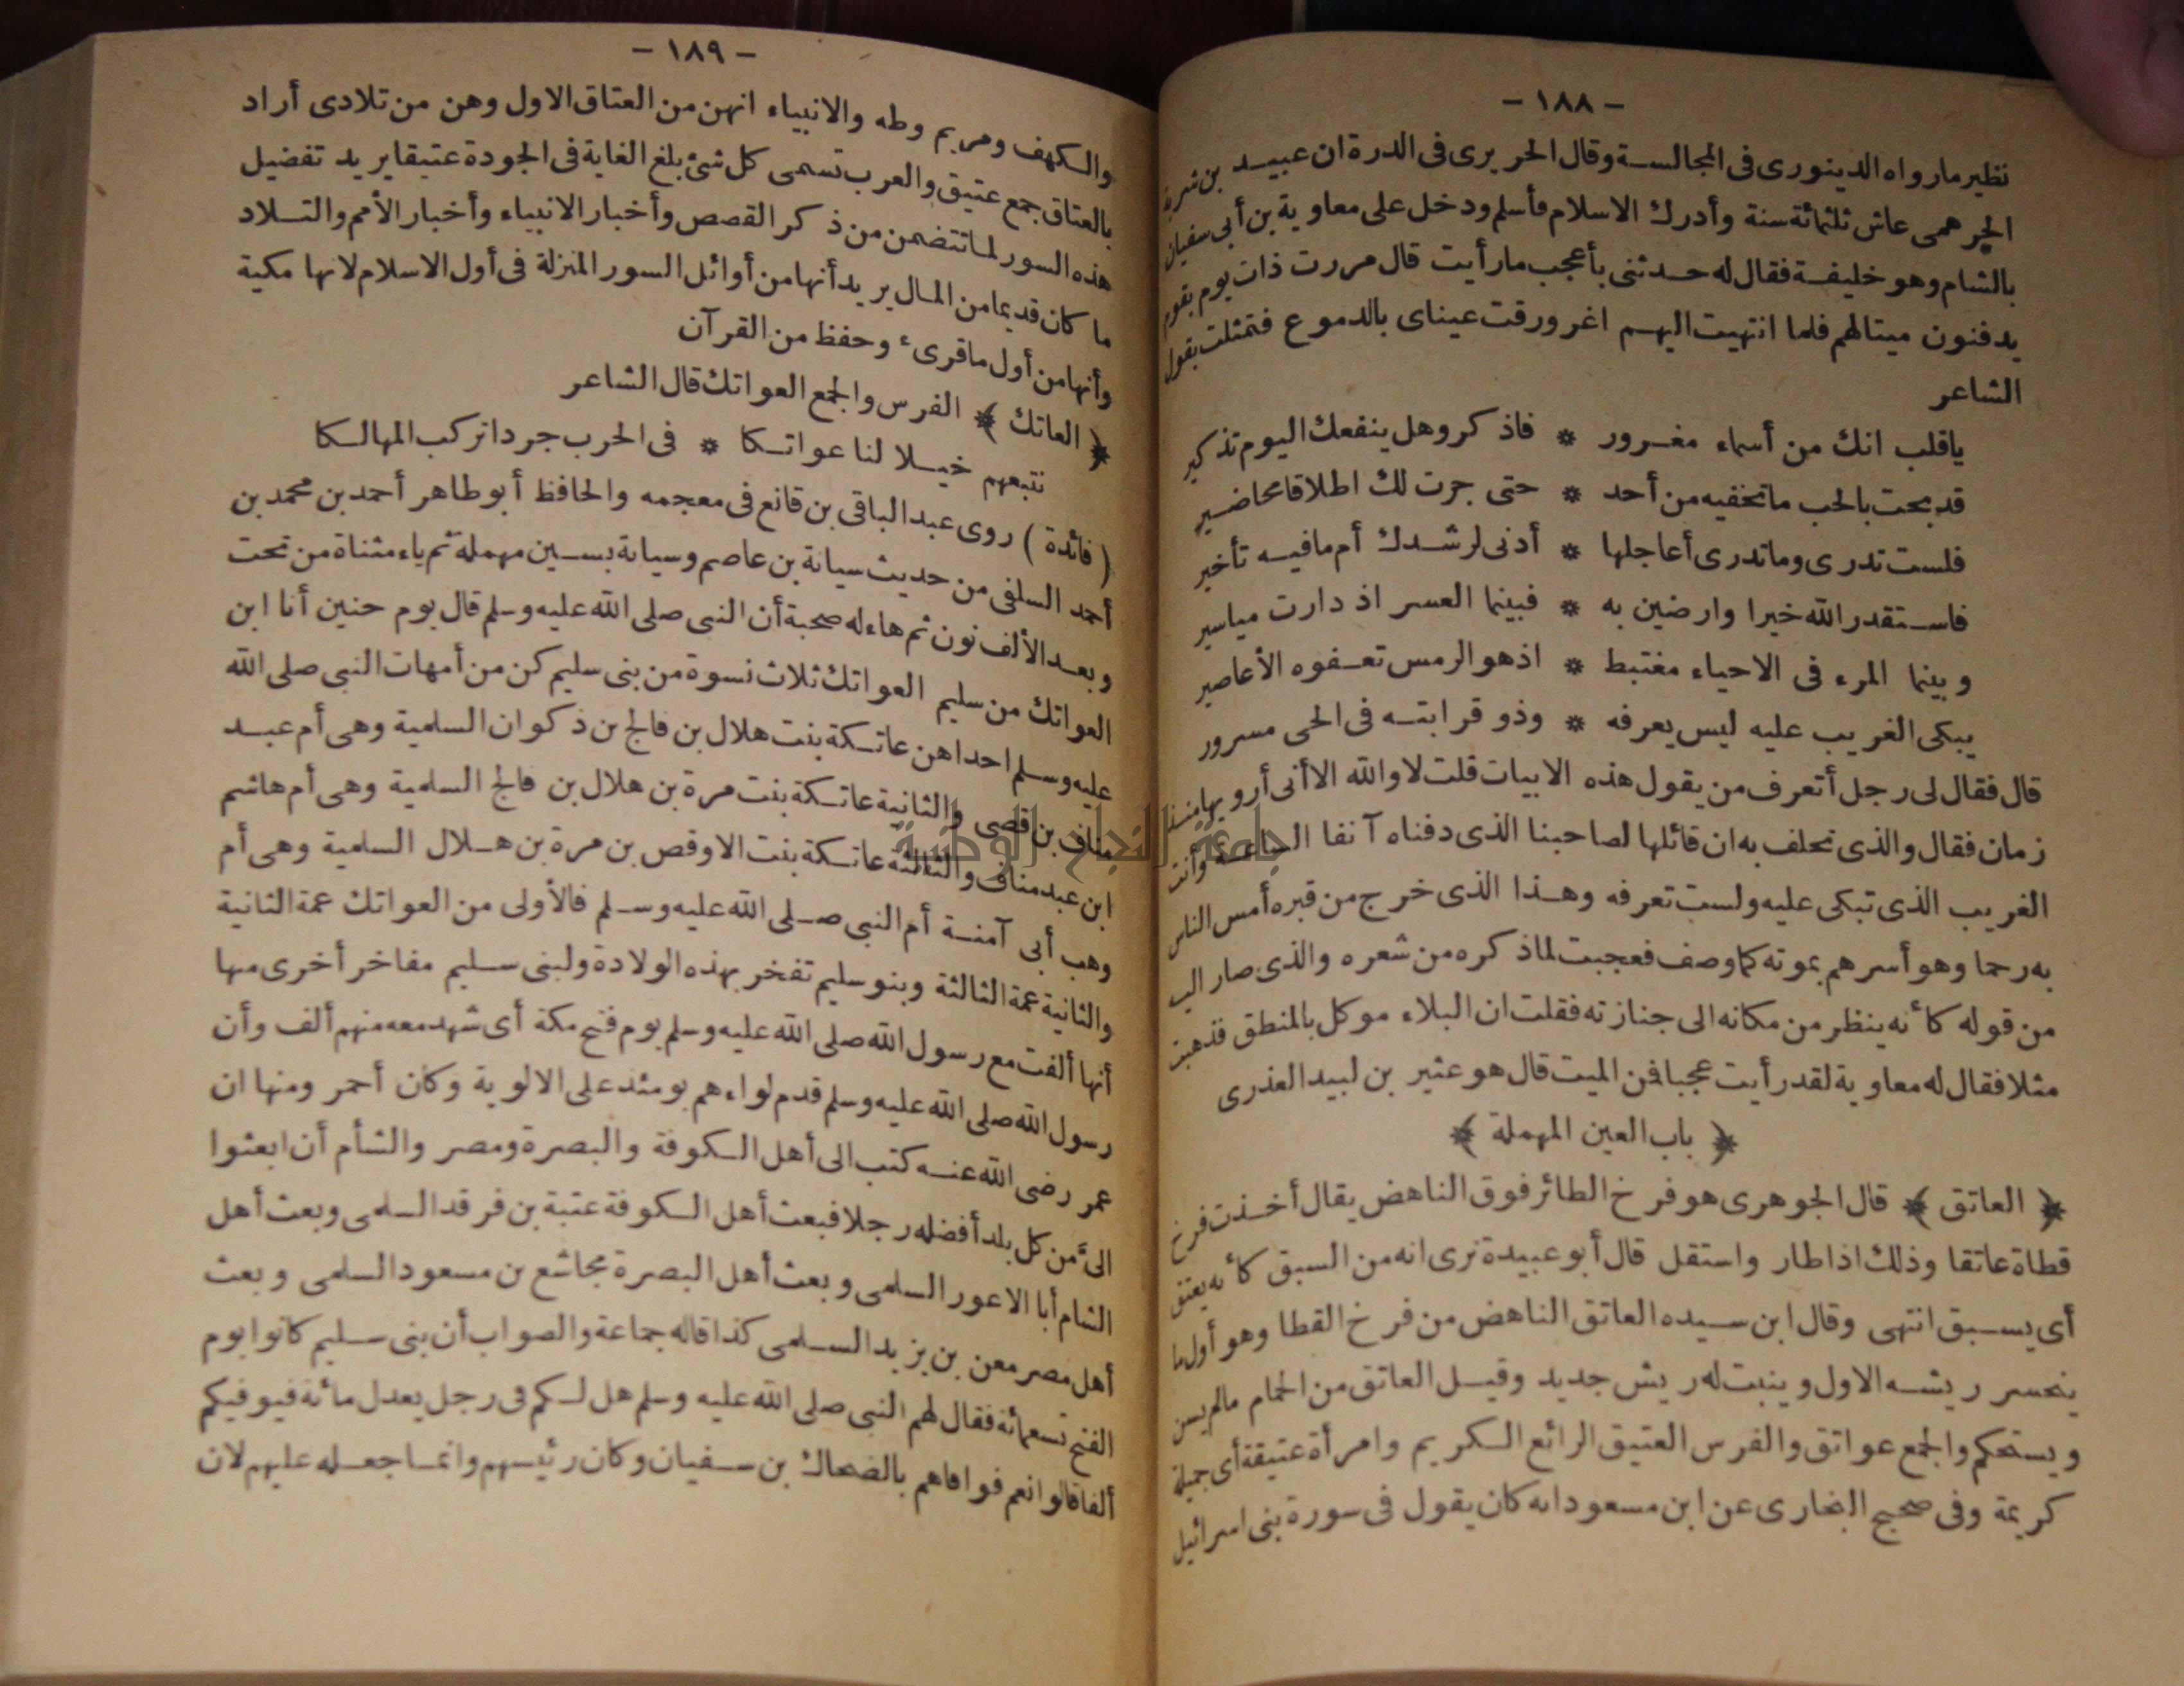 - ١٨٨ -
نظير مارواه الدينورى فى المجالسة وقال الحريرى فى الدرة ان عبيد بن شرية
الجرهمى عاش ثلثمائة سنة وأدرك الاسلام فأسلم ودخل على معاوية بن أبى سفيان
بالشام وهو خليفة فقال له حدثنى بأعجب مارأيت قال مررت ذات يوم بقوم
يدفنون ميتالهم فلما انتهيت اليهم اغرورقت عيناى بالدموع فتمثلت بقول
الشاعر
ياقلب انك من أسماء مغرور * فاذكر وهل ينفعك اليوم تذكير
قد بحت بالحب ماتخفيه من أحد * حتى جرت لك اطلاقا محاضير
فلست تدرى وماتدرى أعاجلها * أدنى لرشدك أم مافيه تأخير
فاستقدر الله خيرا وارضين به * فبينما العسر اذ دارت مياسير
وبينما المرء فى الاحياء مغتبط * اذ هو الرمس تعفوه الأعاصير
يبكى الغريب عليه ليس يعرفه * وذو قرابته فى الحى مسرور
قال فقال لى رجل أتعرف من يقول هذه الابيات قلت لا والله الا أنى أرويها منذ
زمان فقال والذى تحلف به ان قائلها لصاحبنا الذى دفناه آنفا الساعة وأنت
الغريب الذى تبكى عليه ولست تعرفه وهذا الذى خرج من قبره أمس الناس
به رحما وهو أسرهم بموته كما وصف فعجبت لما ذكره من شعره والذى صار اليه
من قوله كأنه ينظر من مكانه الى جنازته فقلت ان البلاء موكل بالمنطق فذهبت
مثلا فقال له معاوية لقد رأيت عجبا فمن الميت قال هو عثير بن لبيد العذرى
﴿ باب العين المهملة ﴾
﴿ العاتق ﴾ قال الجوهرى هو فرخ الطائر فوق الناهض يقال أخذت فرخ
قطاة عاتقا وذلك اذا طار واستقل قال أبو عبيدة نرى انه من السبق كأنه يعتق
أى يسبق انتهى وقال ابن سيده العاتق الناهض من فرخ القطا وهو أول ما
ينحسر ريشه الاول وينبت له ريش جديد وقيل العاتق من الحمام مالم يسن
ويستحكم والجمع عواتق والفرس العتيق الرائع الكريم وامرأة عتيقة أى جميلة
كريمة وفى صحيح البخارى عن ابن مسعود انه كان يقول فى سورة بنى اسرائيل
- ١٨٩ -
والكهف ومريم وطه والانبياء انهن من العتاق الاول وهن من تلادى أراد
بالعتاق جمع عتيق والعرب تسمى كل شئ بلغ الغاية فى الجودة عتيقا يريد تفضيل
هذه السور لما تتضمن من ذكر القصص وأخبار الانبياء وأخبار الأمم والتلاد
ما كان قديما من المال يريد أنها من أوائل السور المنزلة فى أول الاسلام لانها مكية
وأنها من أول ماقرىء وحفظ من القرآن
﴿ العاتك ﴾ الفرس والجمع العواتك قال الشاعر
نتبعهم خيلا لنا عواتكا * فى الحرب جردا تركب المهالكا
( فائدة ) روى عبد الباقى بن قانع فى معجمه والحافظ أبو طاهر أحمد بن محمد بن
أحمد السلفى من حديث سيانة بن عاصم وسيانة بسين مهملة ثم ياء مثناة من تحت
وبعد الألف نون ثم هاء له صحبة أن النبى صلى الله عليه وسلم قال يوم حنين أنا ابن
العواتك من سليم العواتك ثلاث نسوة من بنى سليم كن من أمهات النبى صلى الله
عليه وسلم احداهن عاتكة بنت هلال بن فالج بن ذكوان السلمية وهى أم عبد
مناف بن قصى والثانية عاتكة بنت مرة بن هلال بن فالج السلمية وهى أم هاشم
ابن عبد مناف والثالثة عاتكة بنت الاوقص بن مرة بن هلال السلمية وهى أم
وهب أبى آمنة أم النبى صلى الله عليه وسلم فالأولى من العواتك عمة الثانية
والثانية عمة الثالثة وبنو سليم تفخر بهذه الولادة ولبنى سليم مفاخر أخرى منها
أنها ألفت مع رسول الله صلى الله عليه وسلم يوم فتح مكة أى شهد معه منهم ألف وأن
رسول الله صلى الله عليه وسلم قدم لواءهم يومئذ على الالوية وكان أحمر ومنها ان
عمر رضى الله عنه كتب الى أهل الكوفة والبصرة ومصر والشأم أن ابعثوا
الىّ من كل بلد أفضله رجلا فبعث أهل الكوفة عتبة بن فرقد السلمى وبعث أهل
الشام أبا الاعور السلمى وبعث أهل البصرة مجاشع بن مسعود السلمى وبعث
أهل مصر معن بن يزيد السلمى كذا قاله جماعة والصواب أن بنى سليم كانوا يوم
الفتح تسعمائة فقال لهم النبى صلى الله عليه وسلم هل لكم فى رجل يعدل مائة فيوفيكم
ألفا قالوا نعم فوافاهم بالضحاك بن سفيان وكان رئيسهم وانما جعله عليهم لان
جامعة النجاح الوطنية